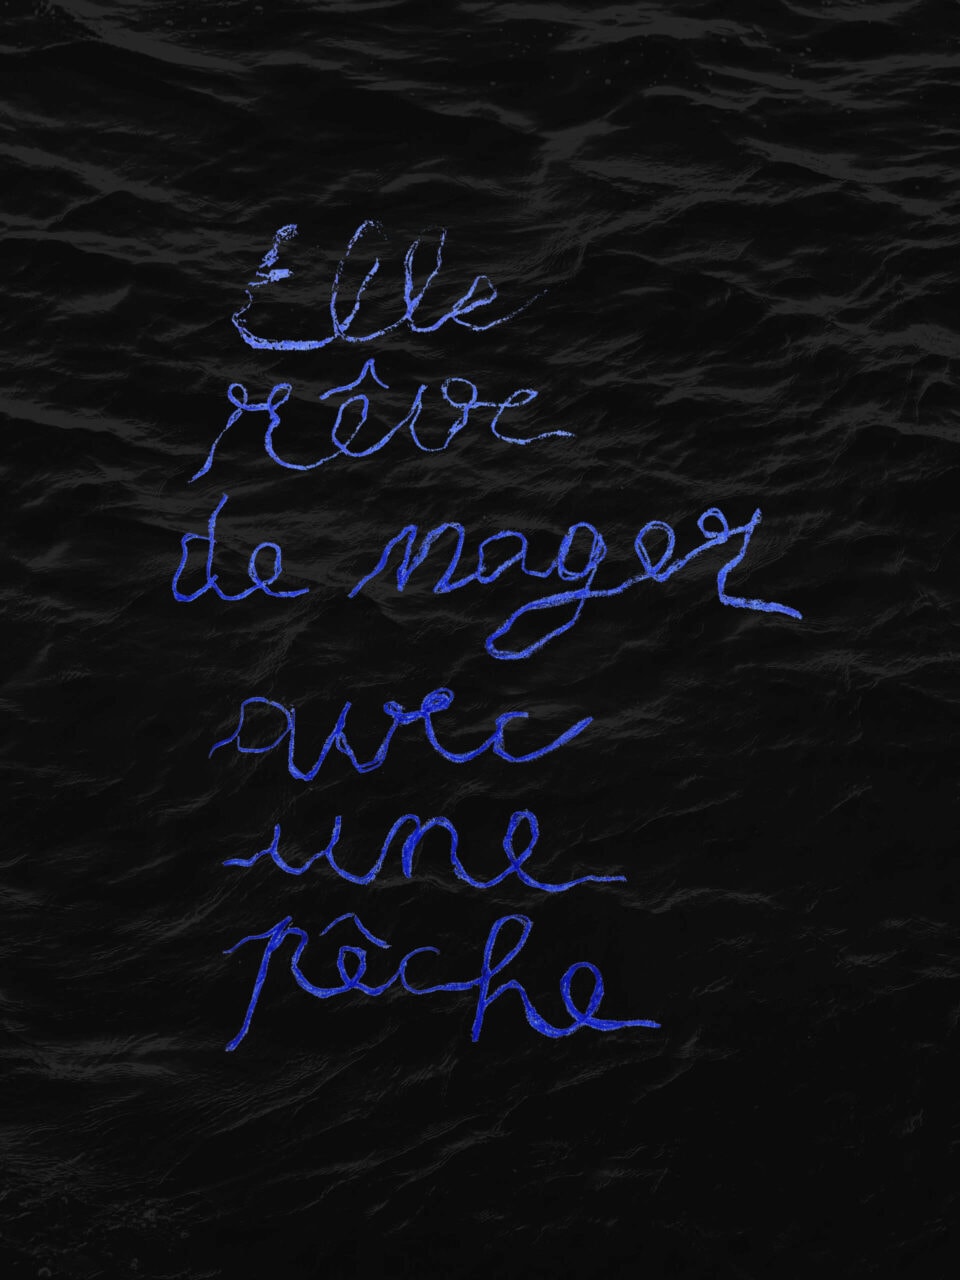 Elle
rêve
de nager
avec
une
pêche